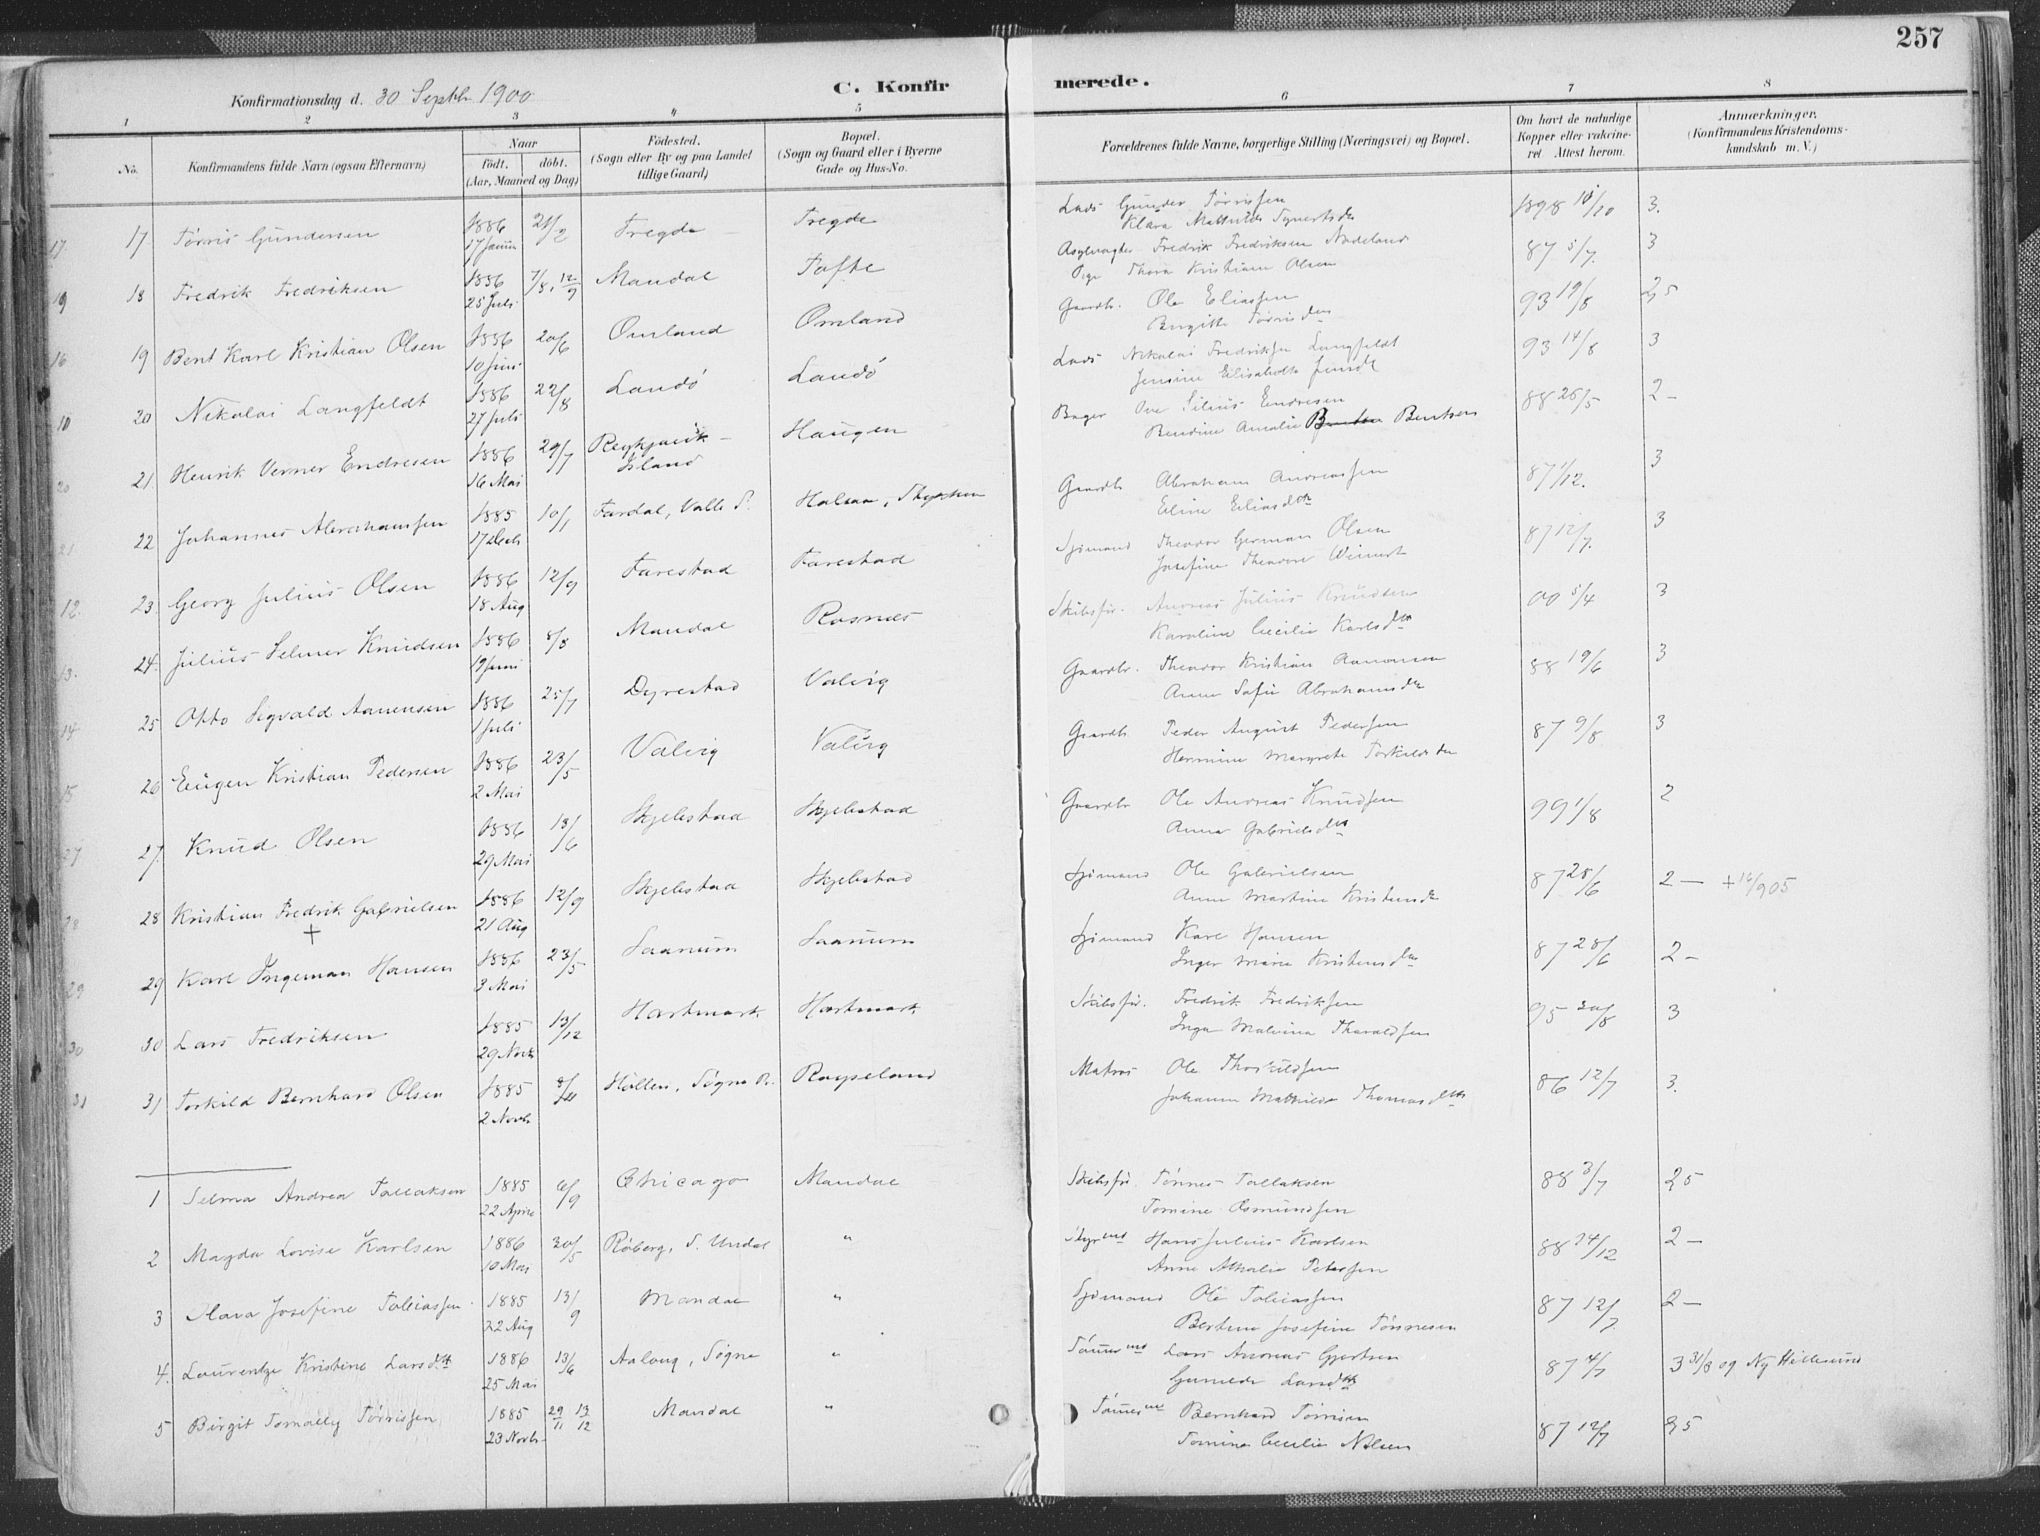 257
Konfirmationsdag d. 30 Septbr 1900
C. Konfirmerede.
1 2 3 4 5 6 7 8
No. Konfirmandens fulde Navn (ogsaa Efternavn) Naar født. døbt. (Aar, Maaned og Dag) Fødested. (Sogn eller By og paa Landet tillige Gaard) Bopæl. (Sogn og Gaard eller i Byerne Gade og Hus-No. Forældrenes fulde Navne, borgerlige Stilling (Næringsvei) og Bopæl. Om havt de naturlige Kopper eller vakcineret. Attest herom. Anmærkninger. (Konfirmandens Kristendomskundskab m. V.)
17 17 Tørris Gundersen 1886 17 Januar 21/2 Tregde Tregde Lods Gunder Tørrissen 1898 18/10 3.
Klara Mathilde
19 18 Fredrik Fredriksen 1886 25 Juli 7/8, 12/9 Mandal Tofte Fredrik Fredriksen Nodeland 87 5/7. 3
Pige Thora Kristiane Olsen
16 19 Bent Karl Kristian Olsen 1886 10 Juni 20/6 Omland Omland Gaardbr. Ole Eliassen 93 19/8 2,5
Birgitte Tørrisdtr
10 20 Nikolai Langfeldt 1886 27 Juli 22/8 Landø Landø Lods Nikolai Fredriksen Langfeldt 93 14/8 3
Jensine Elisabeth
20 21. Henrik Verner Endresen 1886 16 Mai 29/7 Reykjavik - Island Haugen Bager Ove Silius Endresen 88 26/5 2 -
Bendine Amalie Bentsen
21 22 Johannes Abrahamsen 1885 17 Decb 10/1 Fardal, Valle S. Halsaa, Gaardb Abraham Andreassen 87 1/12. 3
Eline Eliasdtr
12. 23. Georg Julius Olsen 1886 18 Aug 12/9 Farestad Farestad Sjømand Theodor German Olsen 87 12/7. 3
Josefine Theodore
13. 24. Julius Selmer Knudsen 1886 19 Juni 8/8 Mandal Rosnæs Skibsfør. Andreas Julius Knudsen 00 5/4 3
Karoline Cecilie Karlsdtr
14 25 Otto Sigvald Aanensen 1886 1 Juli 25/7 Dyrestad Valvig Gaardbr. Theodor Kristian Aanensen 88 19/6 3
Anne Sofie Abrahamsdtr
15 26 Eugen Kristian Pedersen 1886 2 Mai 23/5 Valvig Valvig Gaardb Peder August Pedersen 87 9/8 3
Hermine Margrete Torkildsdtr
27 27. Knud Olsen 1886 29 Mai 13/6 Skjebstad Skjebstad Gaardbr Ole Andreas Knudsen 99 1/8 2
Anna Gabrielsdtr
28 28 Kristian Fredrik Gabrielsen 1886 21 Aug 12/9 Skjebstad Skjebstad Sjømand Ole Gabrielsen 87 28/6 2 — + 16/9 05
+ Anne Martine Kristensdtr
29 29 Karl Ingeman Hansen 1886 3 Mai 23/5 Saanum Saanum Sjømand Karl Hansen 87 28/6 2 -
Inger Marie Kristensdtr
30 30 Lars Fredriksen 1885 29 Novb 13/12 Hartmark Hartmark Skibsfør. Fredrik Fredriksen 95 20/8 3
Inga Malvina Tharaldsen
31 31 Torkild Bernhard Olsen 1885 2 Novb Høllen, Søgne P. Røyseland Matros Ole Thorkildsen 86 12/7 3.
Johanne Mathilde Thomasdtr
1 Selma Andrea Tallaksen 1885 22 April 6/9 Chicago Mandal Skibsfør. Tønnes Tallaksen 88 3/7 2,5
Tomine Osmundsen
2 Magda Lovise Karlsen 1886 10 Mai 30/5 Røberg, S. Undal " Styrmd Hans Julius Karlsen 88 14/12 2 -
Anne Athalie Petersen
3 Klara Josefine Tobiassen 1885 22 Aug 13/9 Mandal " Sjømand Ole Tobiassen 87 12/7 2 -
Bertine Josefine Tønnesen
4. Laurentze Kristine Larsdtt 1886 25 Mai 13/6 Søgne " Tømmermd Lars Andreas Gjertsen 87 4/7 3 31/8 og Ny Hellesund
Gunilde Larsdtr
5 Birgit Tomally Tørrissen 1885 23 Novb 29/11 13/12 Mandal " Tømmermd Bernhard Tørrisen 87 12/7 2,5
Tomine Cecilie Nilsen